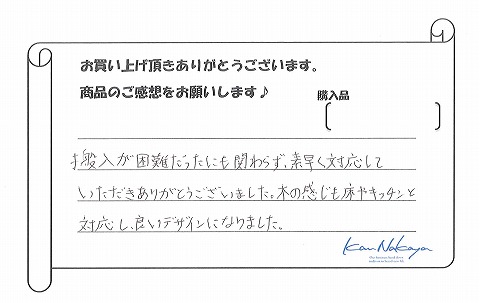 お買い上げ頂きありがとうございます。
商品のご感想をお願いします♪
購入品
搬入が困難だったにも関わらず、素早く対応して
いただきありがとうございました。木の感じも床やキッチンと
対応し、良いデザインになりました。